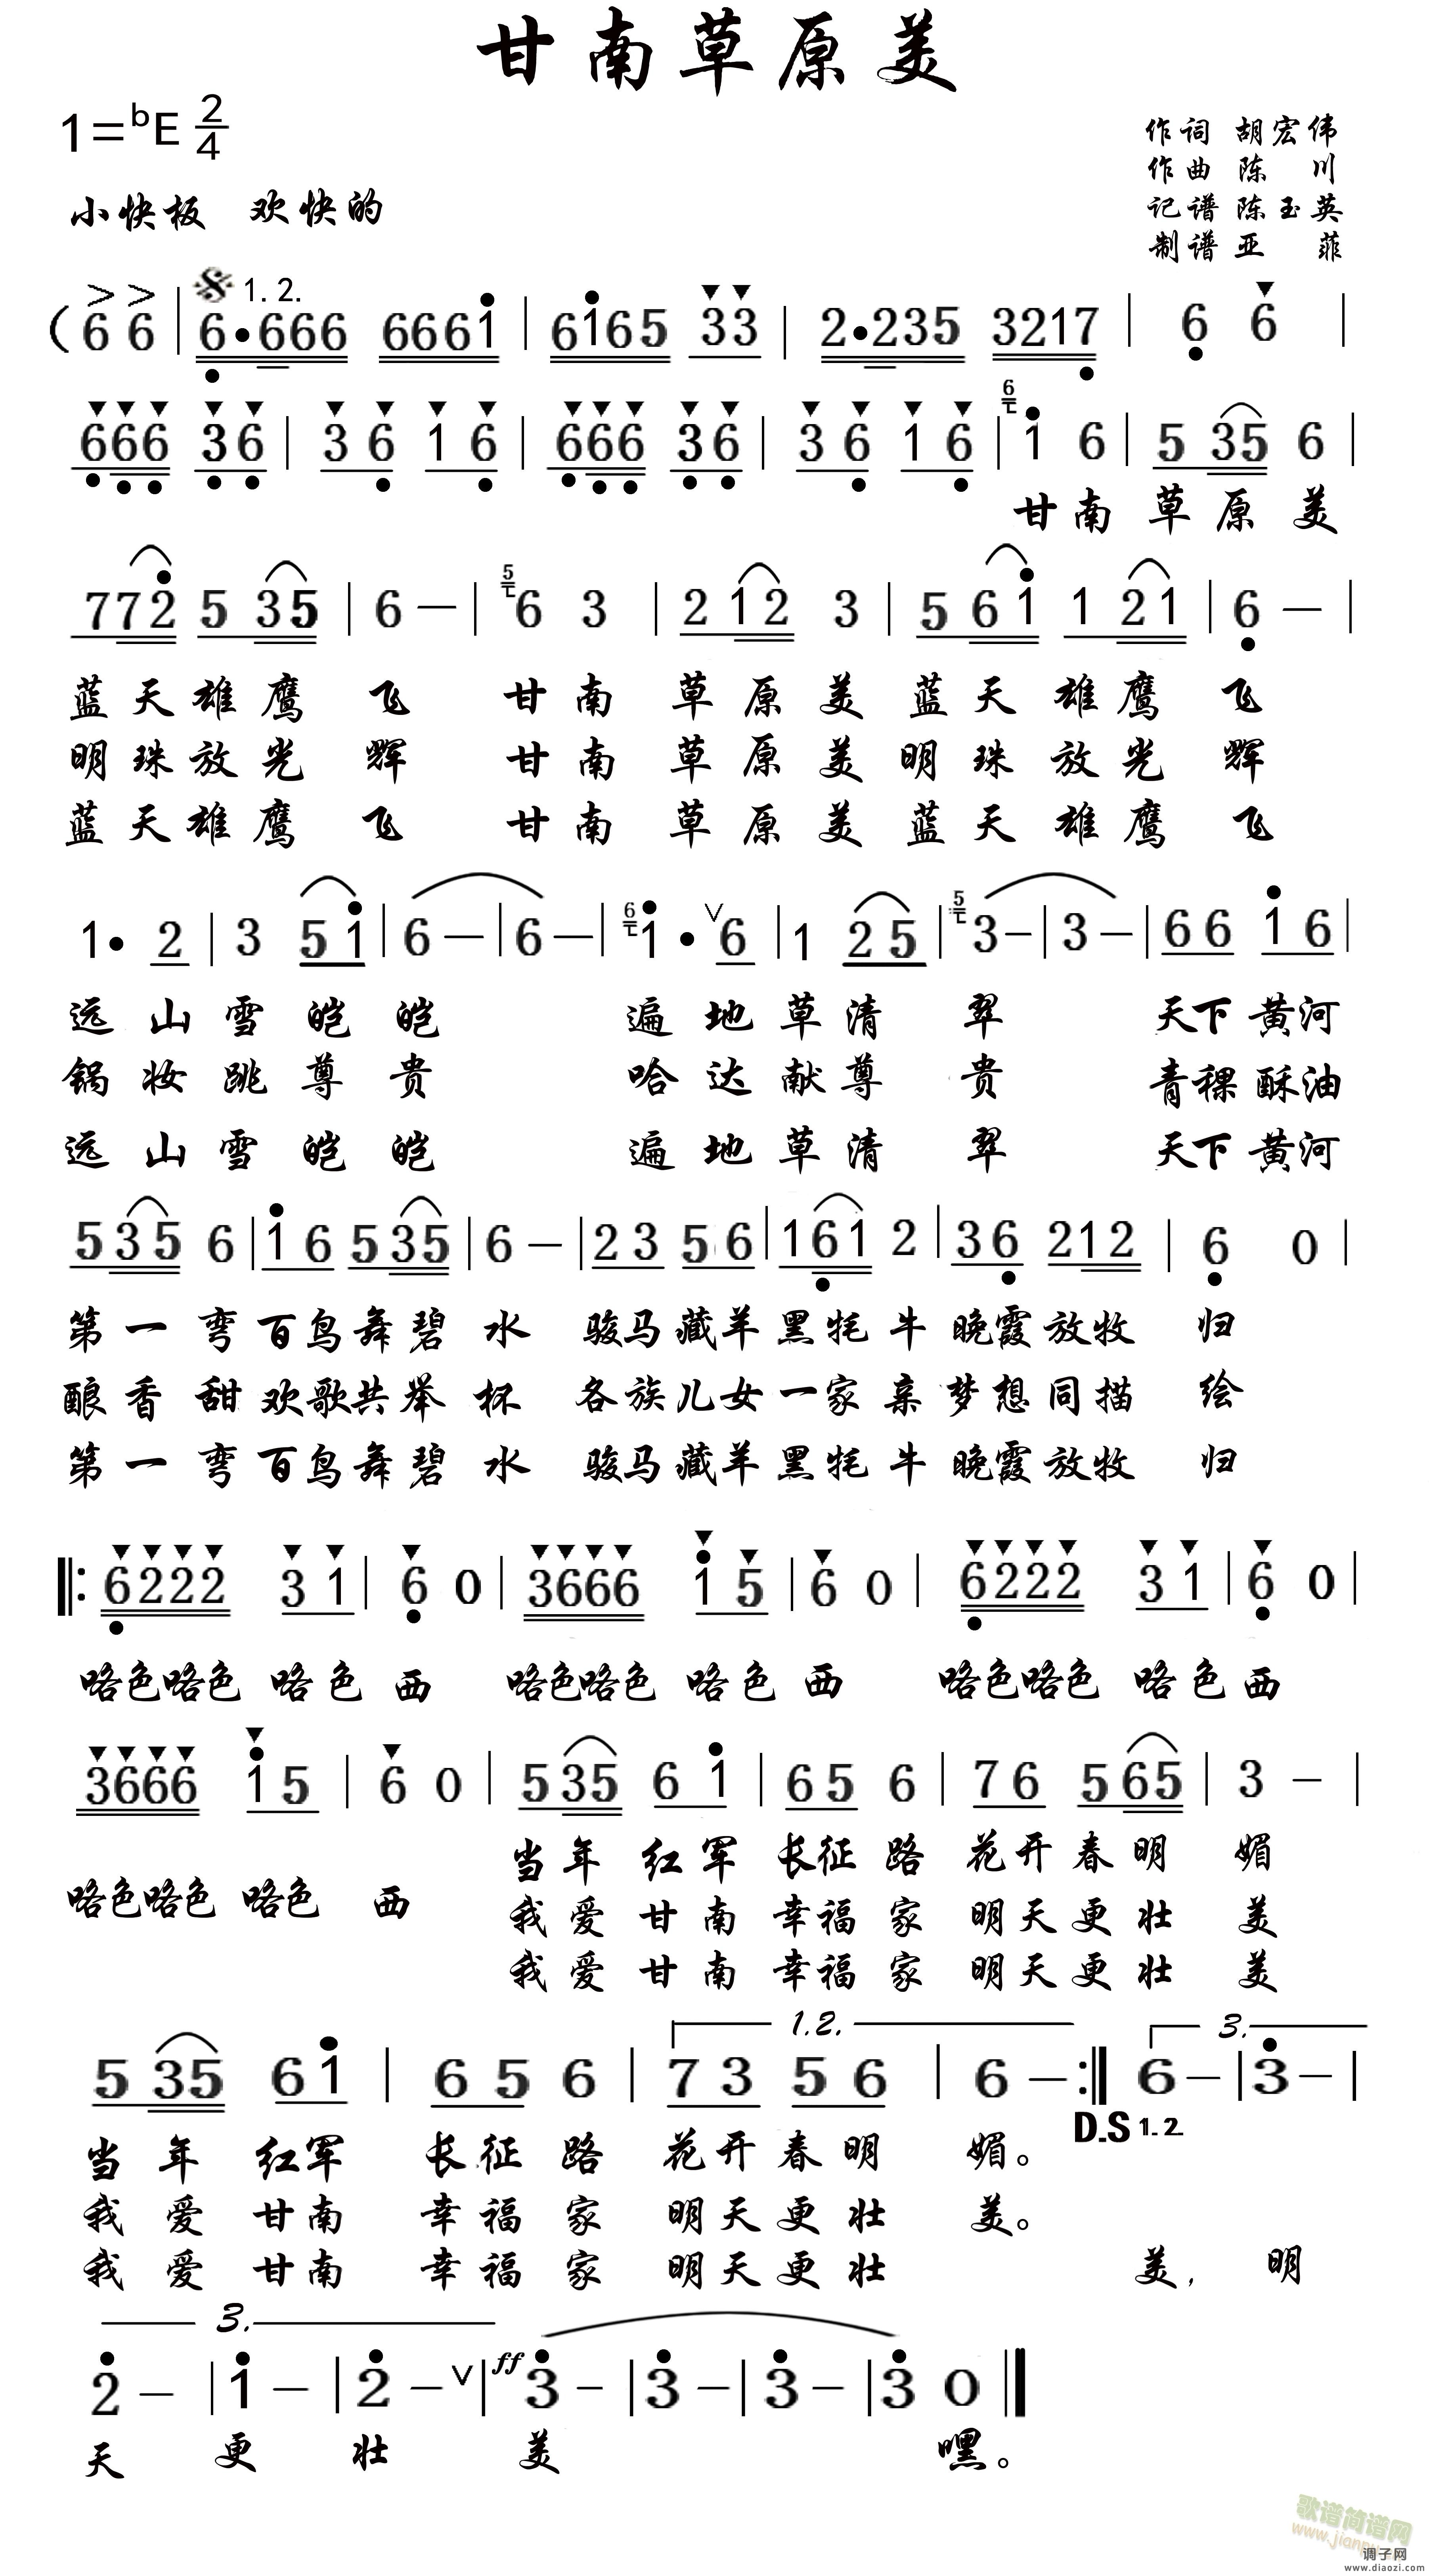 甘南草原美
1=bE 2/4
作词 胡宏伟
作曲 陈 川
小快板 欢快的
记谱 陈玉英
制谱 亚 菲
1.2.
( 6 6 | 6·666 6661 | 6165 33 | 2·235 3217 | 6 6 |
666 36 | 36 16 | 666 36 | 36 16 | 6 1 6 | 5 35 6 |
甘南 草原 美
772 5 35 | 6 — | 5 6 3 | 2 12 3 | 5 61 1 21 | 6 — |
蓝天雄鹰 飞 甘南 草原 美 蓝天 雄鹰 飞
明珠放光 辉 甘南 草原 美 明珠 放光 辉
蓝天雄鹰 飞 甘南 草原 美 蓝天 雄鹰 飞
1· 2 | 3 51 | 6 — | 6 — | 6 1· ∨ 6 | 1 25 | 5 3 — | 3 — | 66 16 |
远山雪皑皑 遍地草清 翠 天下黄河
锅妆跳尊贵 哈达献尊 贵 青稞酥油
远山雪皑皑 遍地草清 翠 天下黄河
5 35 6 | 16 5 35 | 6 — | 23 56 | 1 61 2 | 36 212 | 6 0 |
第一弯百鸟舞碧水 骏马藏羊黑牦牛晚霞放牧 归
酿香甜欢歌共举杯 各族儿女一家亲梦想同描 绘
第一弯百鸟舞碧水 骏马藏羊黑牦牛晚霞放牧 归
‖: 6222 31 | 6 0 | 3666 15 | 6 0 | 6222 31 | 6 0 |
咯色咯色 咯色 西 咯色咯色 咯色 西 咯色咯色 咯色西
3666 15 | 6 0 | 5 35 61 | 65 6 | 76 5 65 | 3 — |
当年 红军 长征路 花开春明 媚
咯色咯色 咯色 西
我爱 甘南 幸福家 明天更壮 美
我爱 甘南 幸福家 明天更壮 美
1.2. 3.
5 35 61 | 65 6 | 73 56 | 6 — :‖ 6 — | 3 — |
D.S 1.2.
当年 红军 长征 路 花开春明 媚。
我爱 甘南 幸福 家 明天更壮 美。
我爱 甘南 幸福 家 明天更壮 美, 明
3.
2 — | 1 — | 2 — ∨ | ff 3 — | 3 — | 3 — | 3 0 ‖
天 更 壮 美 嘿。
歌谱简谱网
www.jianpu.cn
调子网
www.diaozi.com